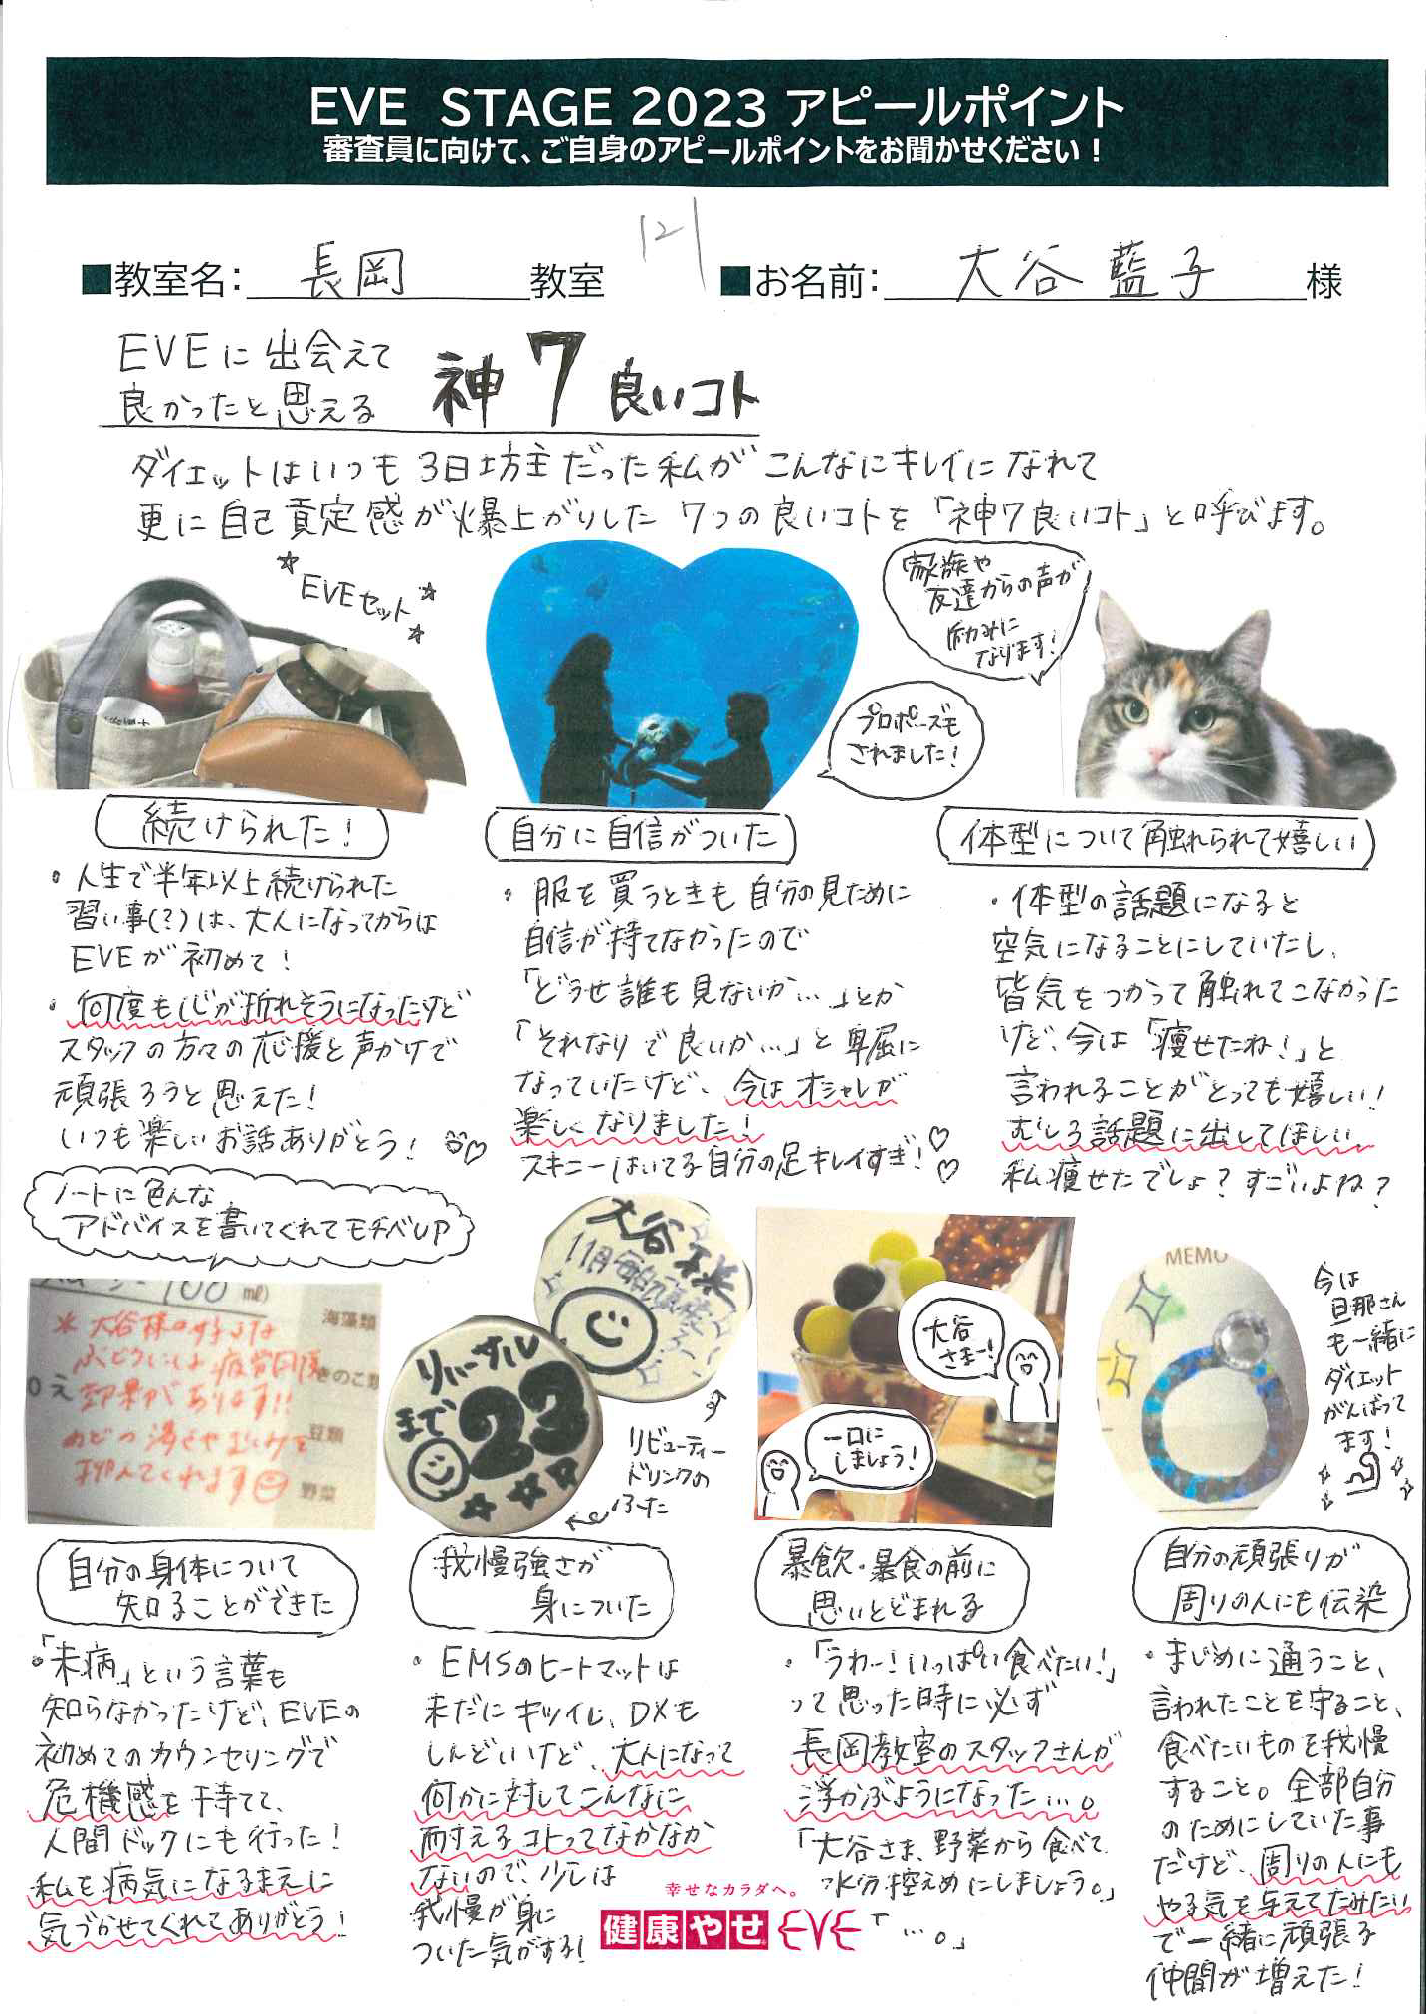 EVE STAGE 2023 アピールポイント
審査員に向けて、ご自身のアピールポイントをお聞かせください！
121
■教室名：長岡教室
■お名前：大谷 藍子 様
EVEに出会えて
良かったと思える
神7良いコト
ダイエットはいつも3日坊主だった私がこんなにキレイになれて
更に自己肯定感が爆上がりした7つの良いコトを「神7良いコト」と呼びます。
EVEセット
プロポーズも
されました！
家族や
友達からの声が
励みに
なります！
続けられた！
・人生で半年以上続けられた
習い事(?)は、大人になってからは
EVEが初めて！
・何度も心が折れそうになったけど
スタッフの方々の応援と声かけで
頑張ろうと思えた！
いつも楽しいお話ありがとう！
自分に自信がついた
・服を買うときも自分の見ために
自信が持てなかったので
「どうせ誰も見ないか…」とか
「それなりで良いか…」と卑屈に
なっていたけど、今はオシャレが
楽しくなりました！
スキニーはいてる自分の足キレイすぎ！
体型について触れられて嬉しい
・体型の話題になると
空気になることにしていたし、
皆気をつかって触れてこなかった
けど、今は「痩せたね！」と
言われることがとっても嬉しい！
むしろ話題に出してほしい
私痩せたでしょ？すごいよね？
ノートに色んな
アドバイスを書いてくれてモチベUP
100 ml)
海藻類
きのこ類
豆類
野菜
※大谷様の好きな
ぶどうには疲労回復
効果があります!!
のどの渇きやむくみを
抑えてくれます
自分の身体について
知ることができた
・「未病」という言葉も
知らなかったけど、EVEの
初めてのカウンセリングで
危機感を持てて、
人間ドックにも行った！
私を病気になるまえに
気づかせてくれてありがとう！
大谷様
11月
リハーサル
まで
23
リビューティー
ドリンクの
ふた
我慢強さが
身についた
・EMSのヒートマットは
未だにキツイし、DXも
しんどいけど、大人になって
何かに対してこんなに
耐えるコトってなかなか
ないので、少しは
我慢が身に
ついた気がする！
大谷
さまー！
一口に
しましょう！
暴飲・暴食の前に
思いとどまれる
・「うわー！いっぱい食べたい！」
って思った時に必ず
長岡教室のスタッフさんが
浮かぶようになった…。
「大谷さま、野菜から食べて
水分控えめにしましょう。」
「…。」
MEMO
今は
旦那さん
も一緒に
ダイエット
がんばって
ます！
自分の頑張りが
周りの人にも伝染
・まじめに通うこと、
言われたことを守ること、
食べたいものを我慢
すること。全部自分
のためにしていた事
だけど、周りの人にも
やる気を与えてたみたい
で一緒に頑張る
仲間が増えた！
幸せなカラダへ。
健康やせ EVE